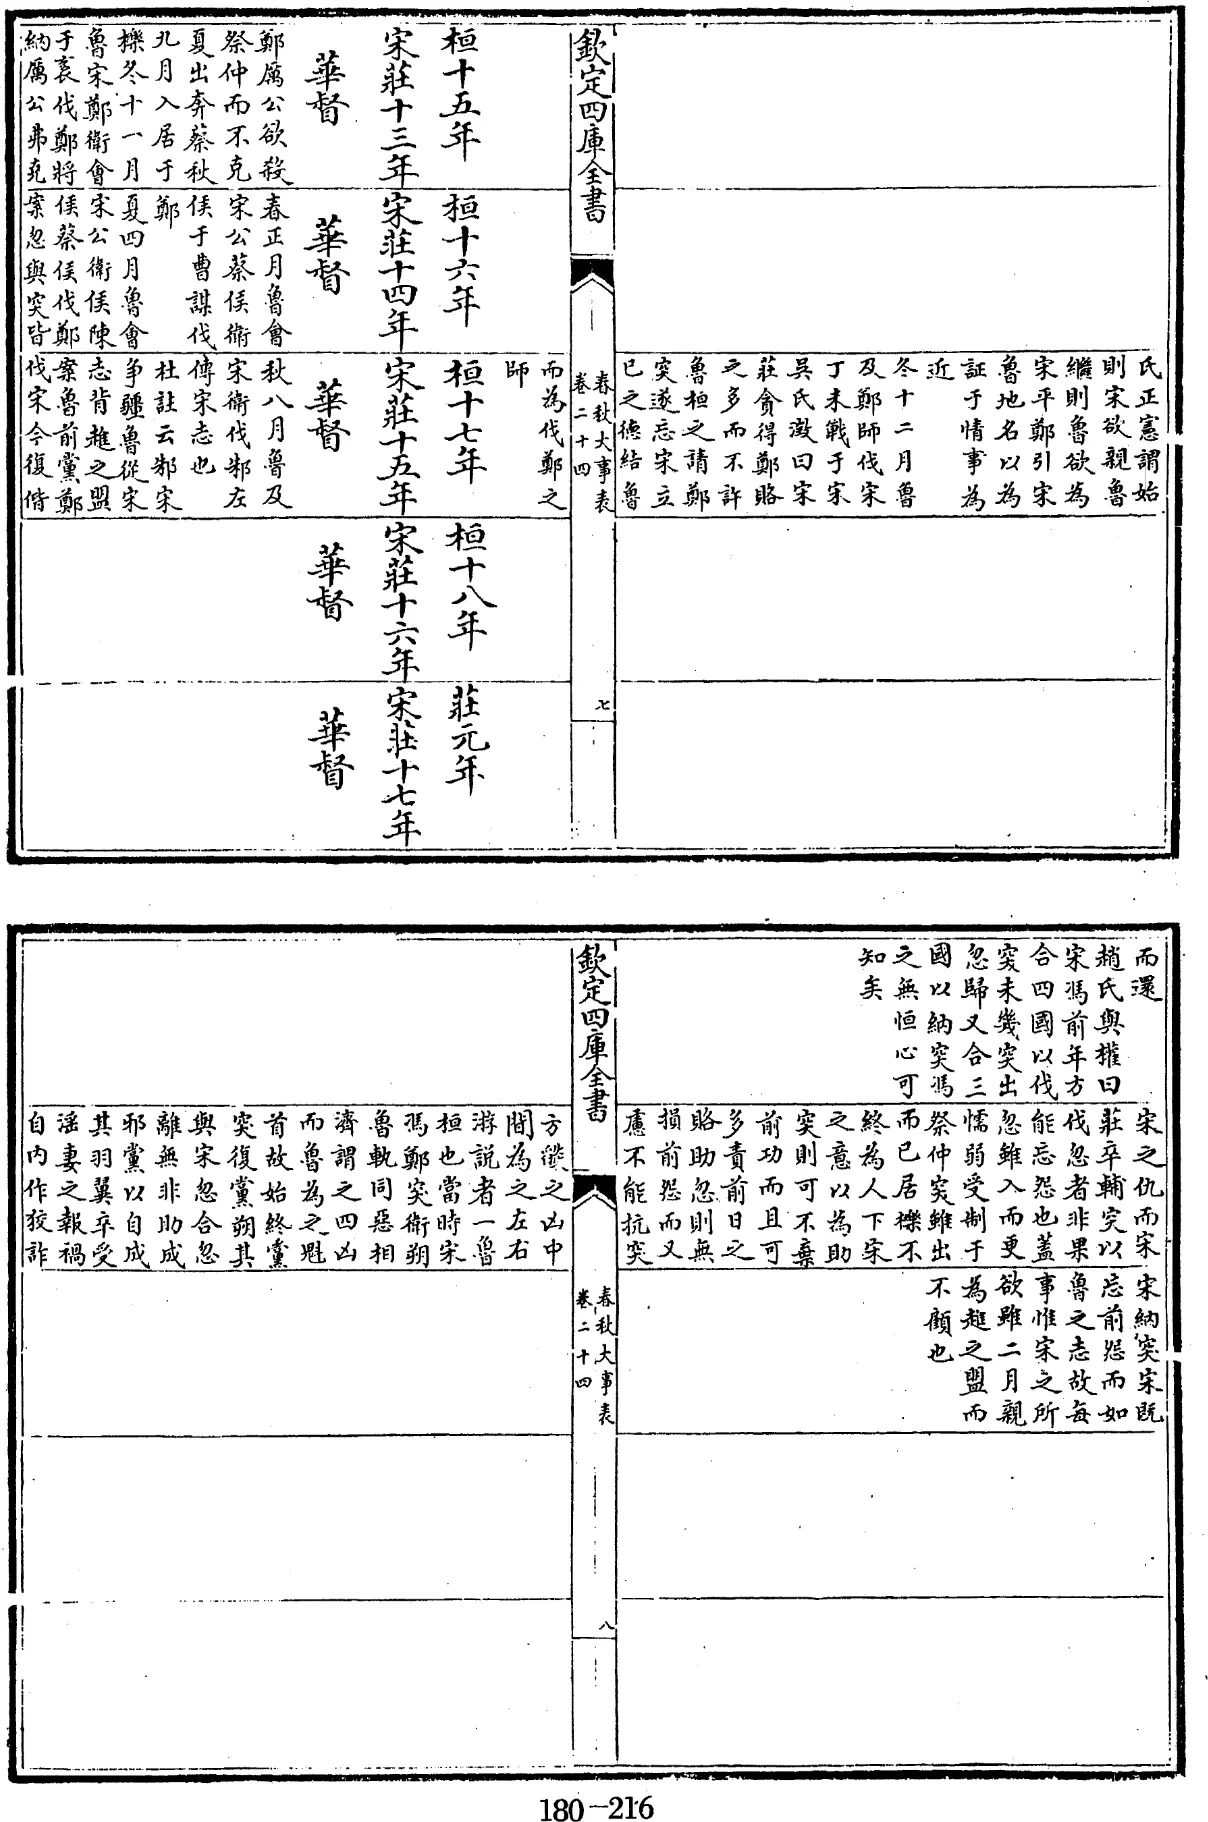 氏正憲謂始
則宋欲親魯
繼則魯欲為
宋平鄭引宋
魯地名以為
証于情事為
近
冬十二月魯
及鄭師伐宋
丁未戰于宋
吳氏澂曰宋
莊貪得鄭賂
之多而不許
魯桓之請鄭
突遂忘宋立
己之德結魯
欽定四庫全書
春秋大事表
卷二十四
七
而為伐鄭之
師
桓十五年
宋莊十三年
華督
鄭厲公欲殺
祭仲而不克
夏出奔蔡秋
九月入居于
櫟冬十一月
魯宋鄭衛會
于袲伐鄭將
納厲公弗克
桓十六年
宋莊十四年
華督
春正月魯會
宋公蔡侯衛
侯于曹謀伐
鄭
夏四月魯會
宋公衛侯陳
侯蔡侯伐鄭
案忽與突皆
桓十七年
宋莊十五年
華督
秋八月魯及
宋衛伐邾左
傳宋志也
杜註云邾宋
争疆魯從宋
志背趡之盟
案魯前黨鄭
伐宋今復偕
桓十八年
宋莊十六年
華督
莊元年
宋莊十七年
華督
而還
趙氏與權曰
宋馮前年方
合四國以伐
突未幾突出
忽歸又合三
國以納突馮
之無恒心可
知矣
宋之仇而宋
莊卒輔突以
伐忽者非果
能忘怨也蓋
忽雖入而更
懦弱受制于
祭仲突雖出
而已居櫟不
終為人下宋
之意以為助
突則可不棄
前功而且可
多責前日之
賂助忽則無
損前怨而又
慮不能抗突
宋納突宋既
忘前怨而如
魯之志故每
事惟宋之所
欲雖二月親
為趡之盟而
不顧也
欽定四庫全書
春秋大事表
卷二十四
八
方懲之凶中
間為之左右
游説者一魯
桓也當時宋
馮鄭突衛朔
魯軌同惡相
濟謂之四凶
而魯為之魁
首故始終黨
突復黨朔其
與宋忽合忽
離無非助成
邪黨以自成
其羽翼卒受
淫妻之報禍
自内作狡詐
180-216